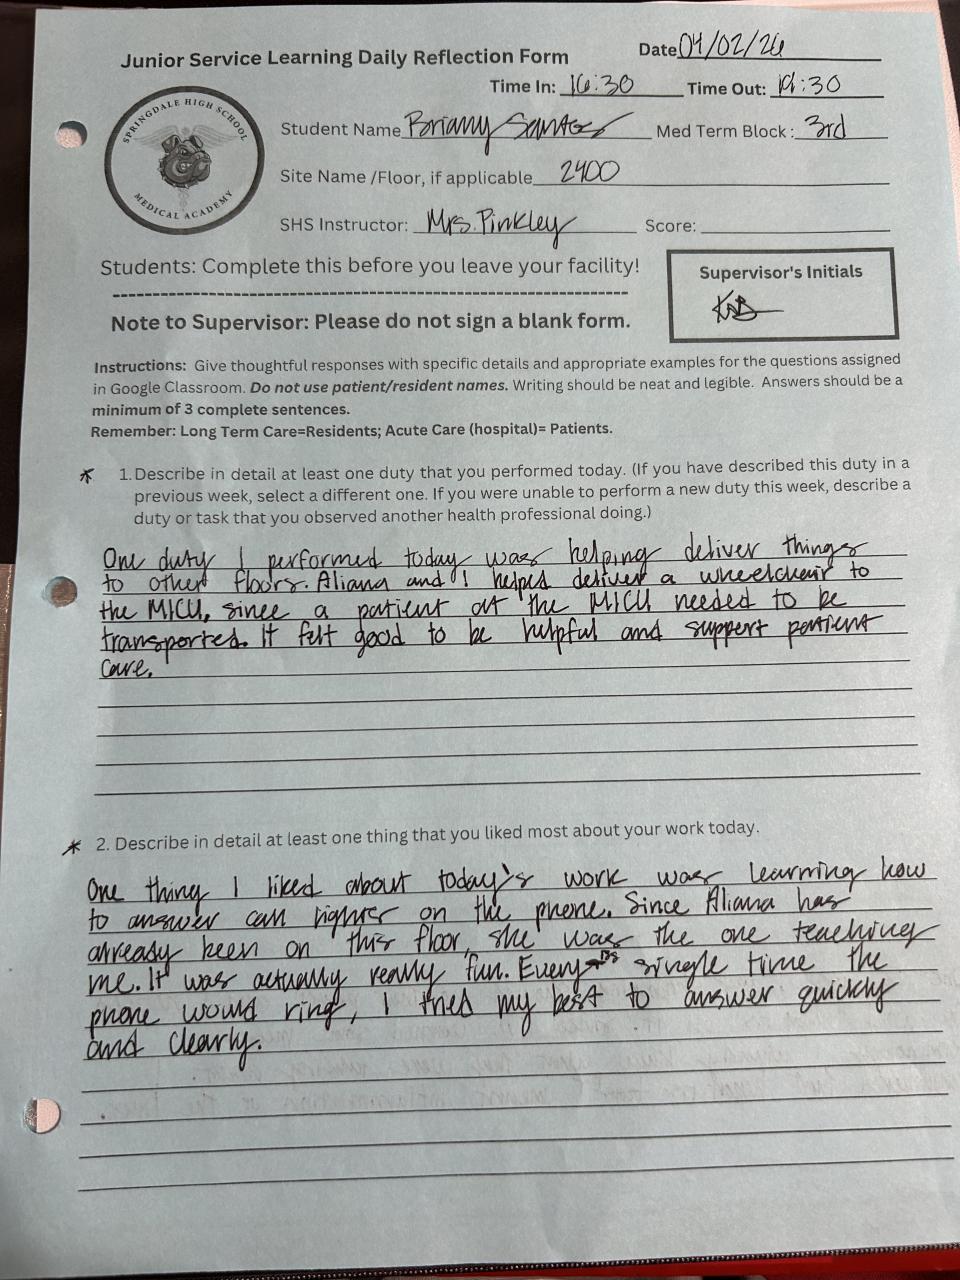 Junior Service Learning Daily Reflection Form
Date 04/02/26
Time In: 16:30 Time Out: 19:30
SPRINGDALE HIGH SCHOOL
MEDICAL ACADEMY
Student Name Briany Santos Med Term Block: 3rd
Site Name /Floor, if applicable 2400
SHS Instructor: Mrs. Pinkley Score:
Students: Complete this before you leave your facility!
Supervisor's Initials
Note to Supervisor: Please do not sign a blank form.
Instructions: Give thoughtful responses with specific details and appropriate examples for the questions assigned
in Google Classroom. Do not use patient/resident names. Writing should be neat and legible. Answers should be a
minimum of 3 complete sentences.
Remember: Long Term Care=Residents; Acute Care (hospital)= Patients.
* 1. Describe in detail at least one duty that you performed today. (If you have described this duty in a
previous week, select a different one. If you were unable to perform a new duty this week, describe a
duty or task that you observed another health professional doing.)
One duty I performed today was helping deliver things
to other floors. Aliana and I helped deliver a wheelchair to
the MICU, since a patient at the MICU needed to be
transported. It felt good to be helpful and support patient
care.
* 2. Describe in detail at least one thing that you liked most about your work today.
One thing I liked about today's work was learning how
to answer call lights on the phone. Since Aliana has
already been on this floor, she was the one teaching
me. It was actually really fun. Every single time the
phone would ring, I tried my best to answer quickly
and clearly.